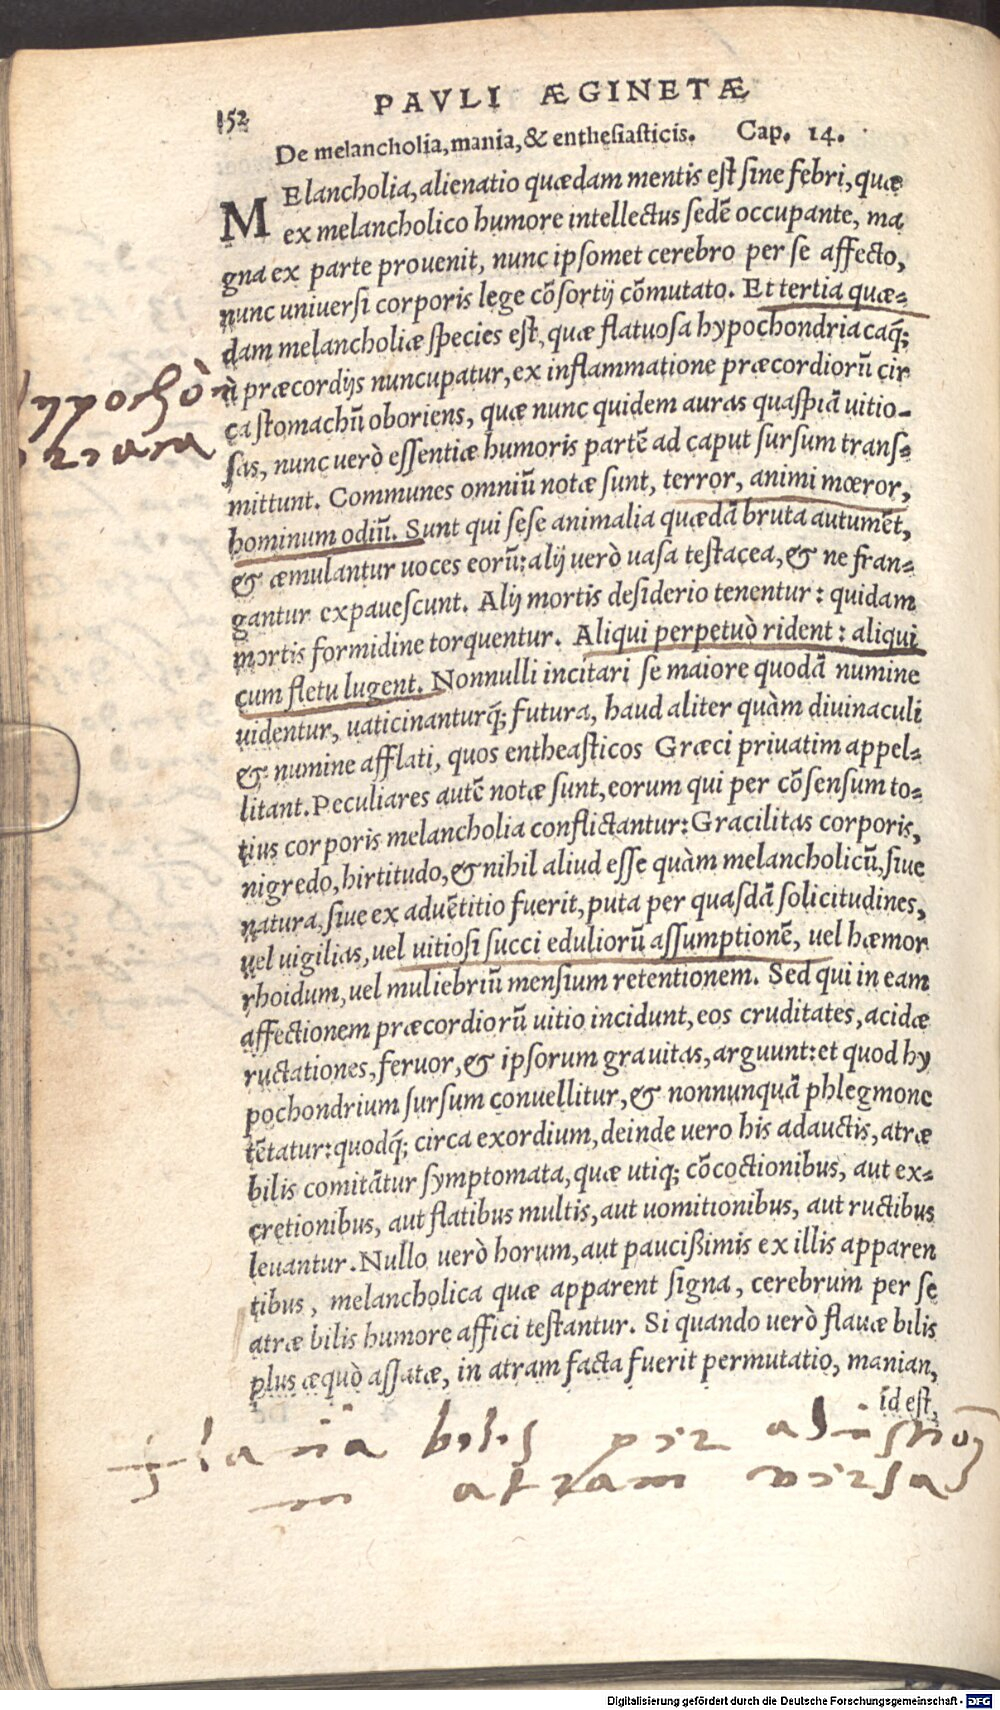 152
PAVLI ÆGINETÆ
De melancholia, mania, & enthesiasticis. Cap. 14.
MElancholia, alienatio quædam mentis est sine febri, quæ
ex melancholico humore intellectus sedē occupante, ma
gna ex parte prouenit, nunc ipsomet cerebro per se affecto,
nunc uniuersi corporis lege cōsortij cōmutato. Et tertia quæ=
dam melancholiæ species est, quæ flatuosa hypochondriacaq́;
à præcordijs nuncupatur, ex inflammatione præcordiorū cir
ca stomachū oboriens, quæ nunc quidem auras quaspiā uitio-
sas, nunc uerò essentiæ humoris partē ad caput sursum trans=
mittunt. Communes omniū notæ sunt, terror, animi mœror,
hominum odiū. Sunt qui sese animalia quædā bruta autumēt,
& æmulantur uoces eorū: alij uerò uasa testacea, & ne fran=
gantur expauescunt. Alij mortis desiderio tenentur: quidam
mortis formidine torquentur. Aliqui perpetuò rident: aliqui
cum fletu lugent. Nonnulli incitari se maiore quodā numine
uidentur, uaticinanturq́; futura, haud aliter quàm diuinaculi
& numine afflati, quos entheasticos Græci priuatim appel=
litant. Peculiares autē notæ sunt, eorum qui per cōsensum to=
tius corporis melancholia conflictantur: Gracilitas corporis,
nigredo, hirtitudo, & nihil aliud esse quàm melancholicū, siue
natura, siue ex aduētitio fuerit, puta per quasdā solicitudines,
uel uigilias, uel uitiosi succi eduliorū assumptionē, uel hæmor
rhoidum, uel muliebriū mensium retentionem. Sed qui in eam
affectionem præcordiorū uitio incidunt, eos cruditates, acidæ
ructationes, feruor, & ipsorum grauitas, arguunt: et quod hy
pochondrium sursum conuellitur, & nonnunquā phlegmone
tētatur: quodq́; circa exordium, deinde uero his adauctis, atræ
bilis comitātur symptomata, quæ utiq; cōcoctionibus, aut ex=
cretionibus, aut flatibus multis, aut uomitionibus, aut ructibus
leuantur. Nullo uerò horum, aut paucißimis ex illis apparen
tibus, melancholica quæ apparent signa, cerebrum per se
atræ bilis humore affici testantur. Si quando uerò flauæ bilis
plus æquò assatæ, in atram facta fuerit permutatio, manian,
id est,
hypochòn
driaca
flaua bilis per adustionē
in atram versa